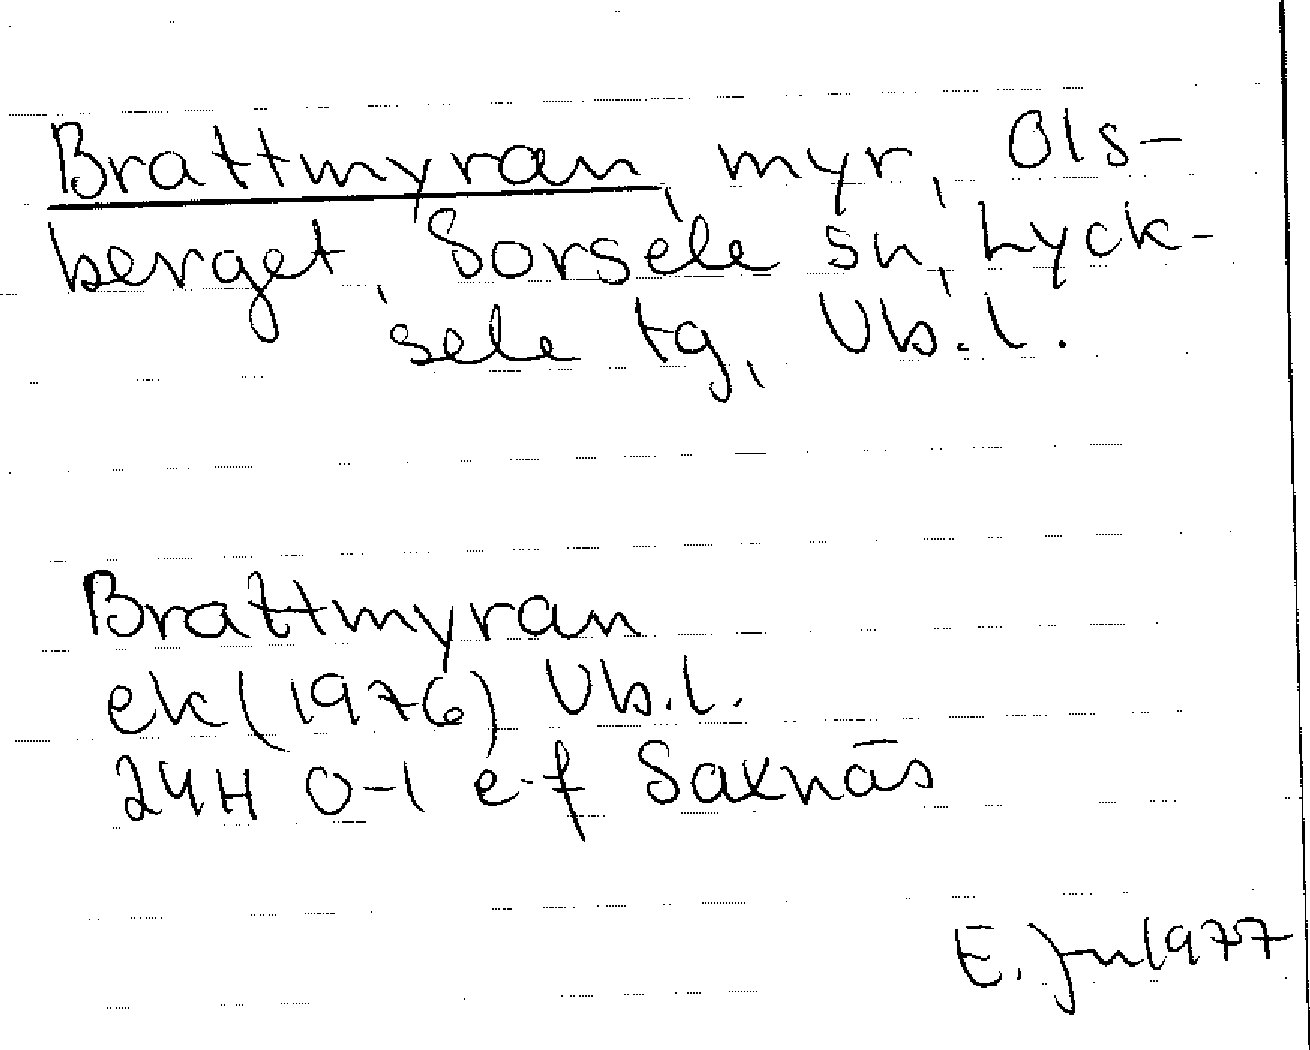 Brattmyran, myr, Ols-
berget, Sorsele sn, Lyck-
sele tg, Vb.l.
Brattmyran
ek (1976) Vb.l.
24H 0-1 e-f Saxnäs
E. Jn 1977